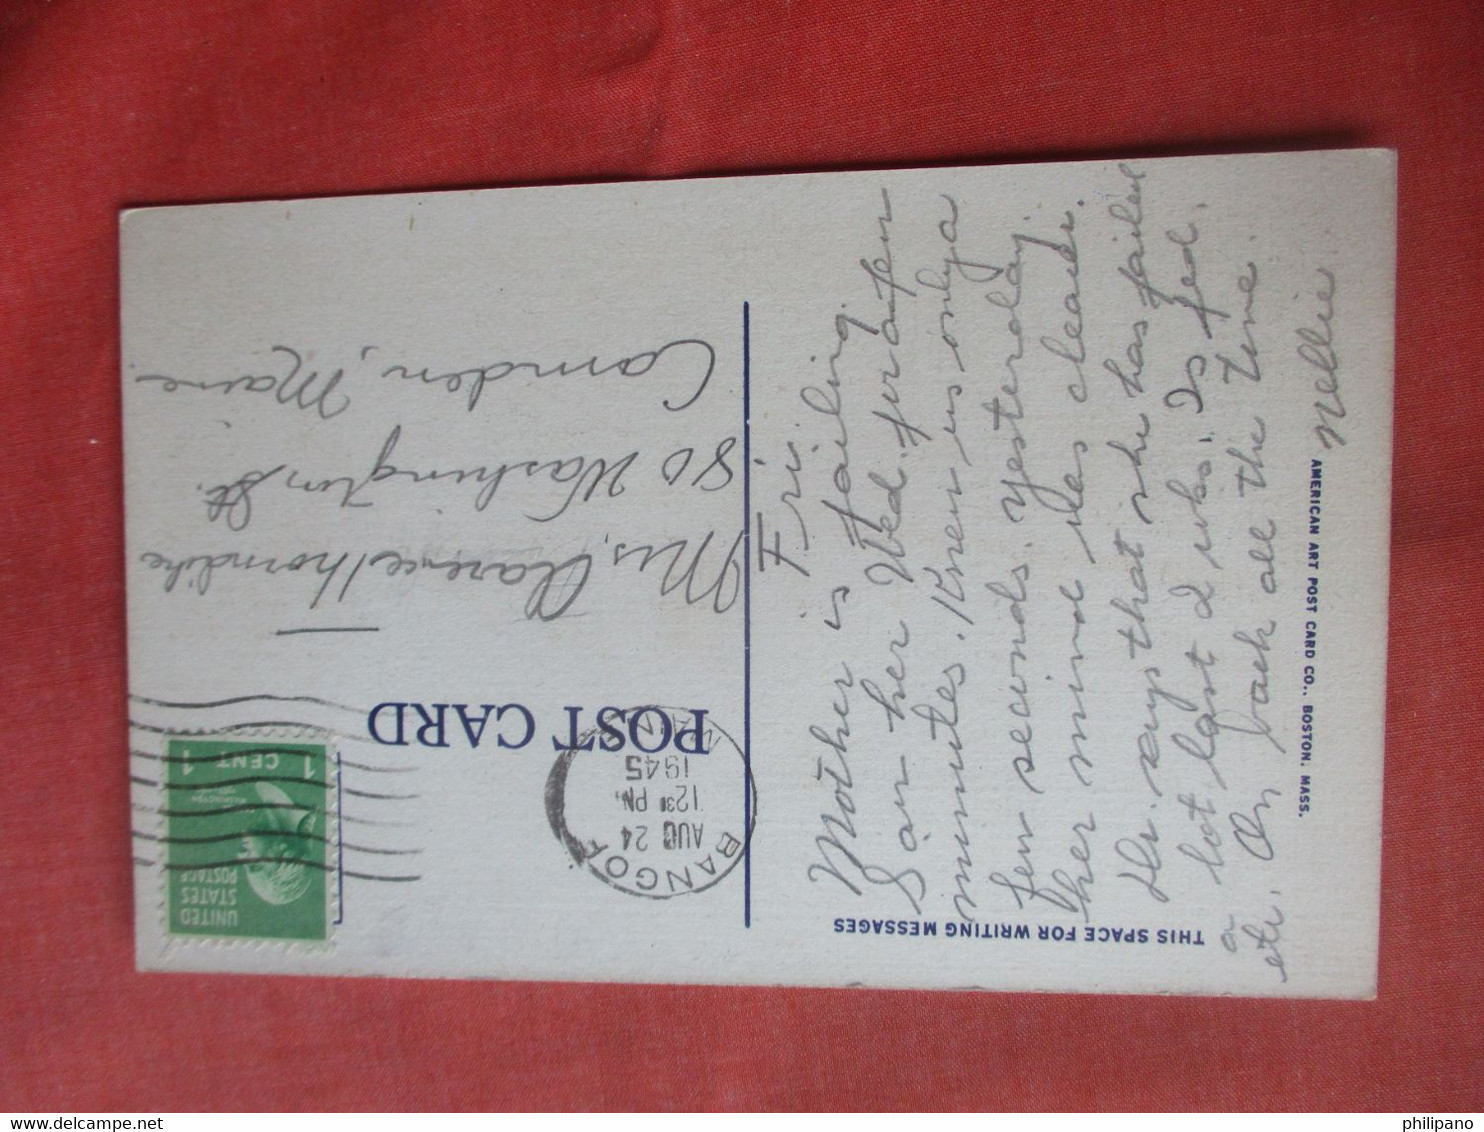 THIS SPACE FOR WRITING MESSAGES
Fri.
Mother is failing.
Saw her Wed. for a few
minutes. Knew us only a
few seconds. Yesterday
her mind was clear.
Dr. says that she has failed
a lot last 2 wks. Is fed
etc. On back all the time.
Nellie
AMERICAN ART POST CARD CO., BOSTON, MASS.
POST CARD
BANGOR
AUG 24
12 30 PM
1945
MAINE
UNITED
STATES
POSTAGE
WASHINGTON
1 CENT 1
Mrs. Clarence Thorndike
80 Washington St.
Camden, Maine
philipano
delcampe.net